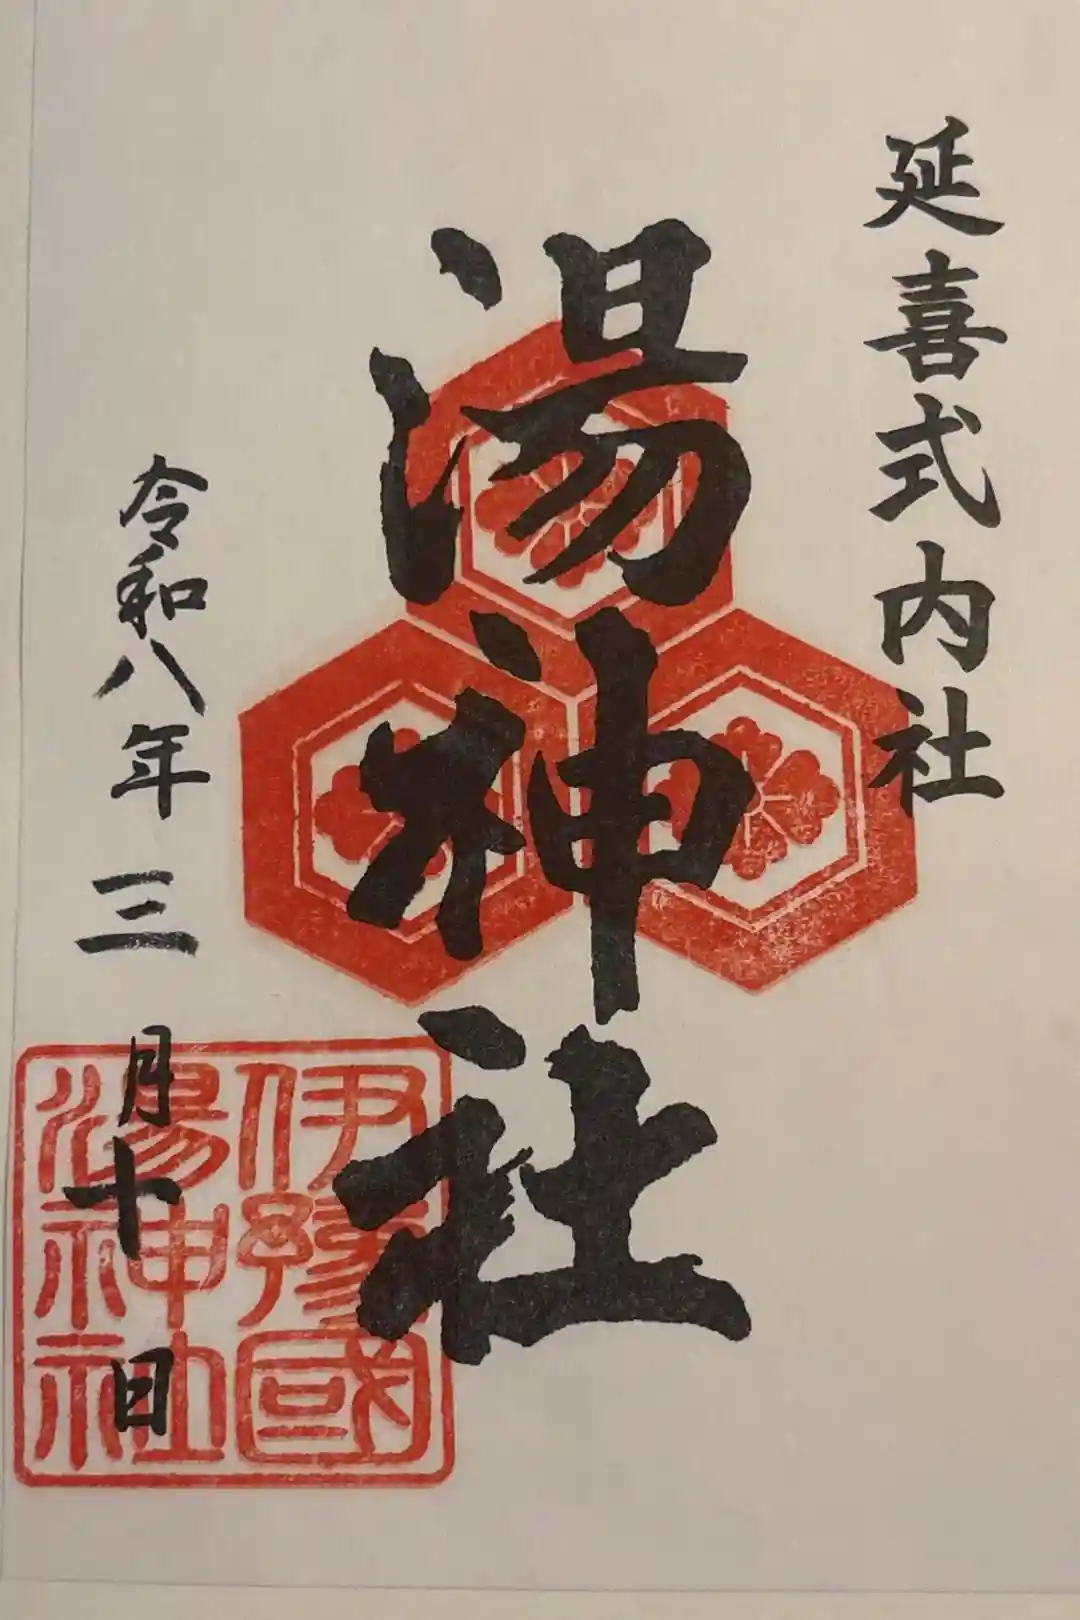 延喜式内社
湯神社
令和八年三月十日
伊豫國
湯神社